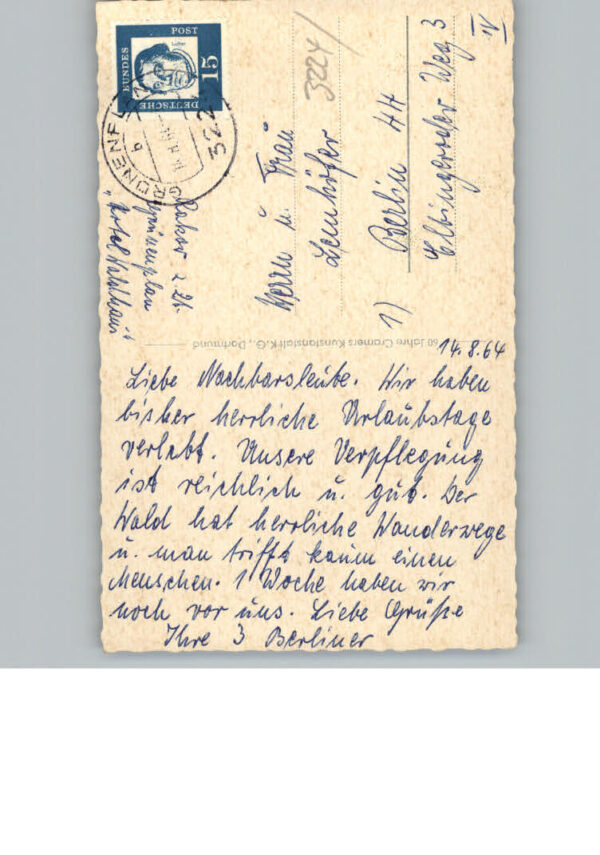 DEUTSCHE
BUNDES
POST
15
Luther
b
3224/
z. Zt.
Grünenplan
"Hotel Waldhaus"
Herrn u. Frau
Lemhöfer
1) Berlin 44
Elbingeroder Weg 3
IV
60 Jahre Cramers Kunstanstalt K.G., Dortmund
14.8.64
Liebe Nachbarsleute. Wir haben
bisher herrliche Urlaubstage
verlebt. Unsere Verpflegung
ist reichlich u. gut. Der
Wald hat herrliche Wanderwege
u. man trifft kaum einen
Menschen. 1 Woche haben wir
noch vor uns. Liebe Grüße
Ihre 3 Berliner